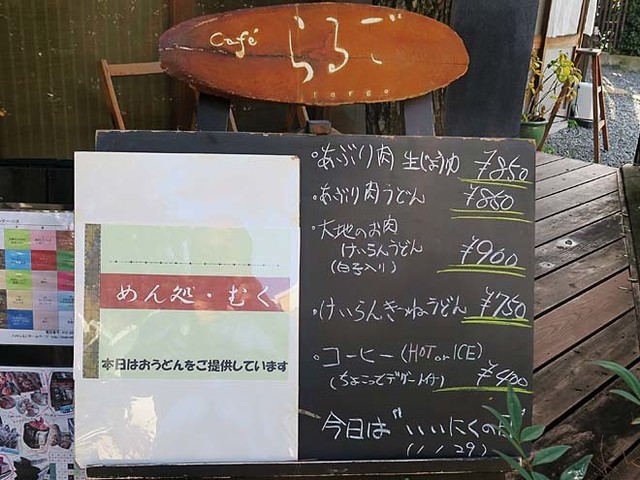 Café らるご
largo
めん処・むく
本日はおうどんをご提供しています
・あぶり肉 生じょうゆ ¥850
・あぶり肉うどん ¥850
・大地のお肉
けいらんうどん
(白子入り) ¥900
・けいらんきつねうどん ¥750
・コーヒー (HOT or ICE)
(ちょこっとデザート付) ¥400
今日は"いいにくの日
(11/29)